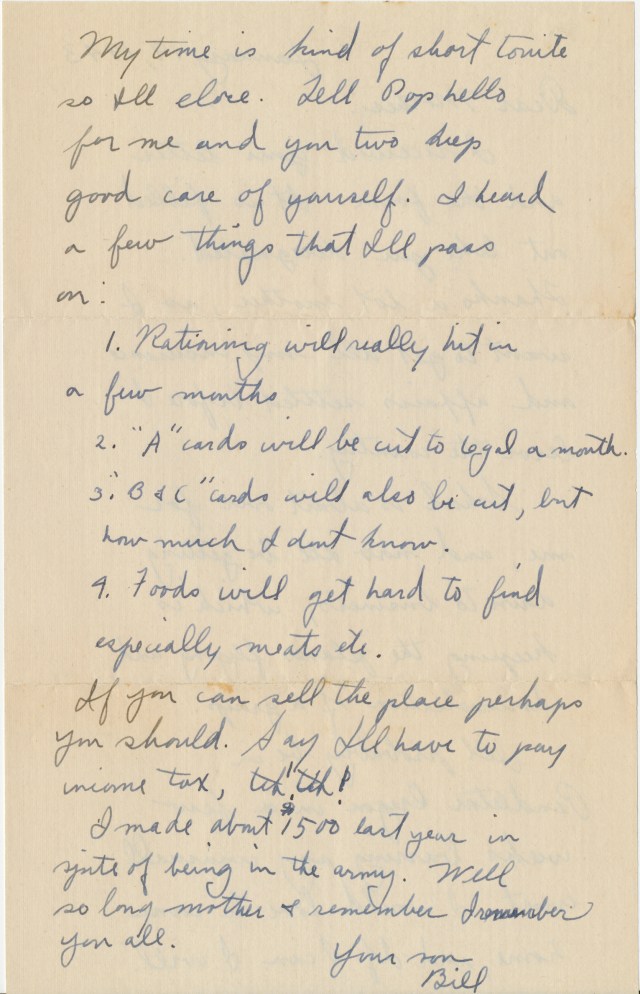 My time is kind of short tonite
so Ill close. Tell Pop hello
for me and you two keep
good care of yourself. I heard
a few things that Ill pass
on:
1. Rationing will really hit in
a few months
2. "A" cards will be cut to 6 gal a month.
3. "B & C" cards will also be cut, but
how much I dont know.
4. Foods will get hard to find
especially meats etc.
If you can sell the place perhaps
you should. Say Ill have to pay
income tax, tch! tch!
I made about $1500 last year in
spite of being in the army. Well
so long mother & remember I remember
you all.
Your son
Bill